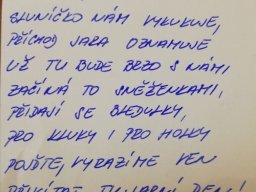 SLUNÍČKO NÁM VYKUKUJE,
PŘÍCHOD JARA OZNAMUJE
UŽ TU BUDE BRZO S NÁMI
ZAČÍNÁ TO SNĚŽENKAMI,
PŘIDAJÍ SE BLEDULKY,
PRO KLUKY I PRO HOLKY
POJĎTE, VYRAZÍME VEN
PŘIVÍTAT TU JARNÍ DEN!